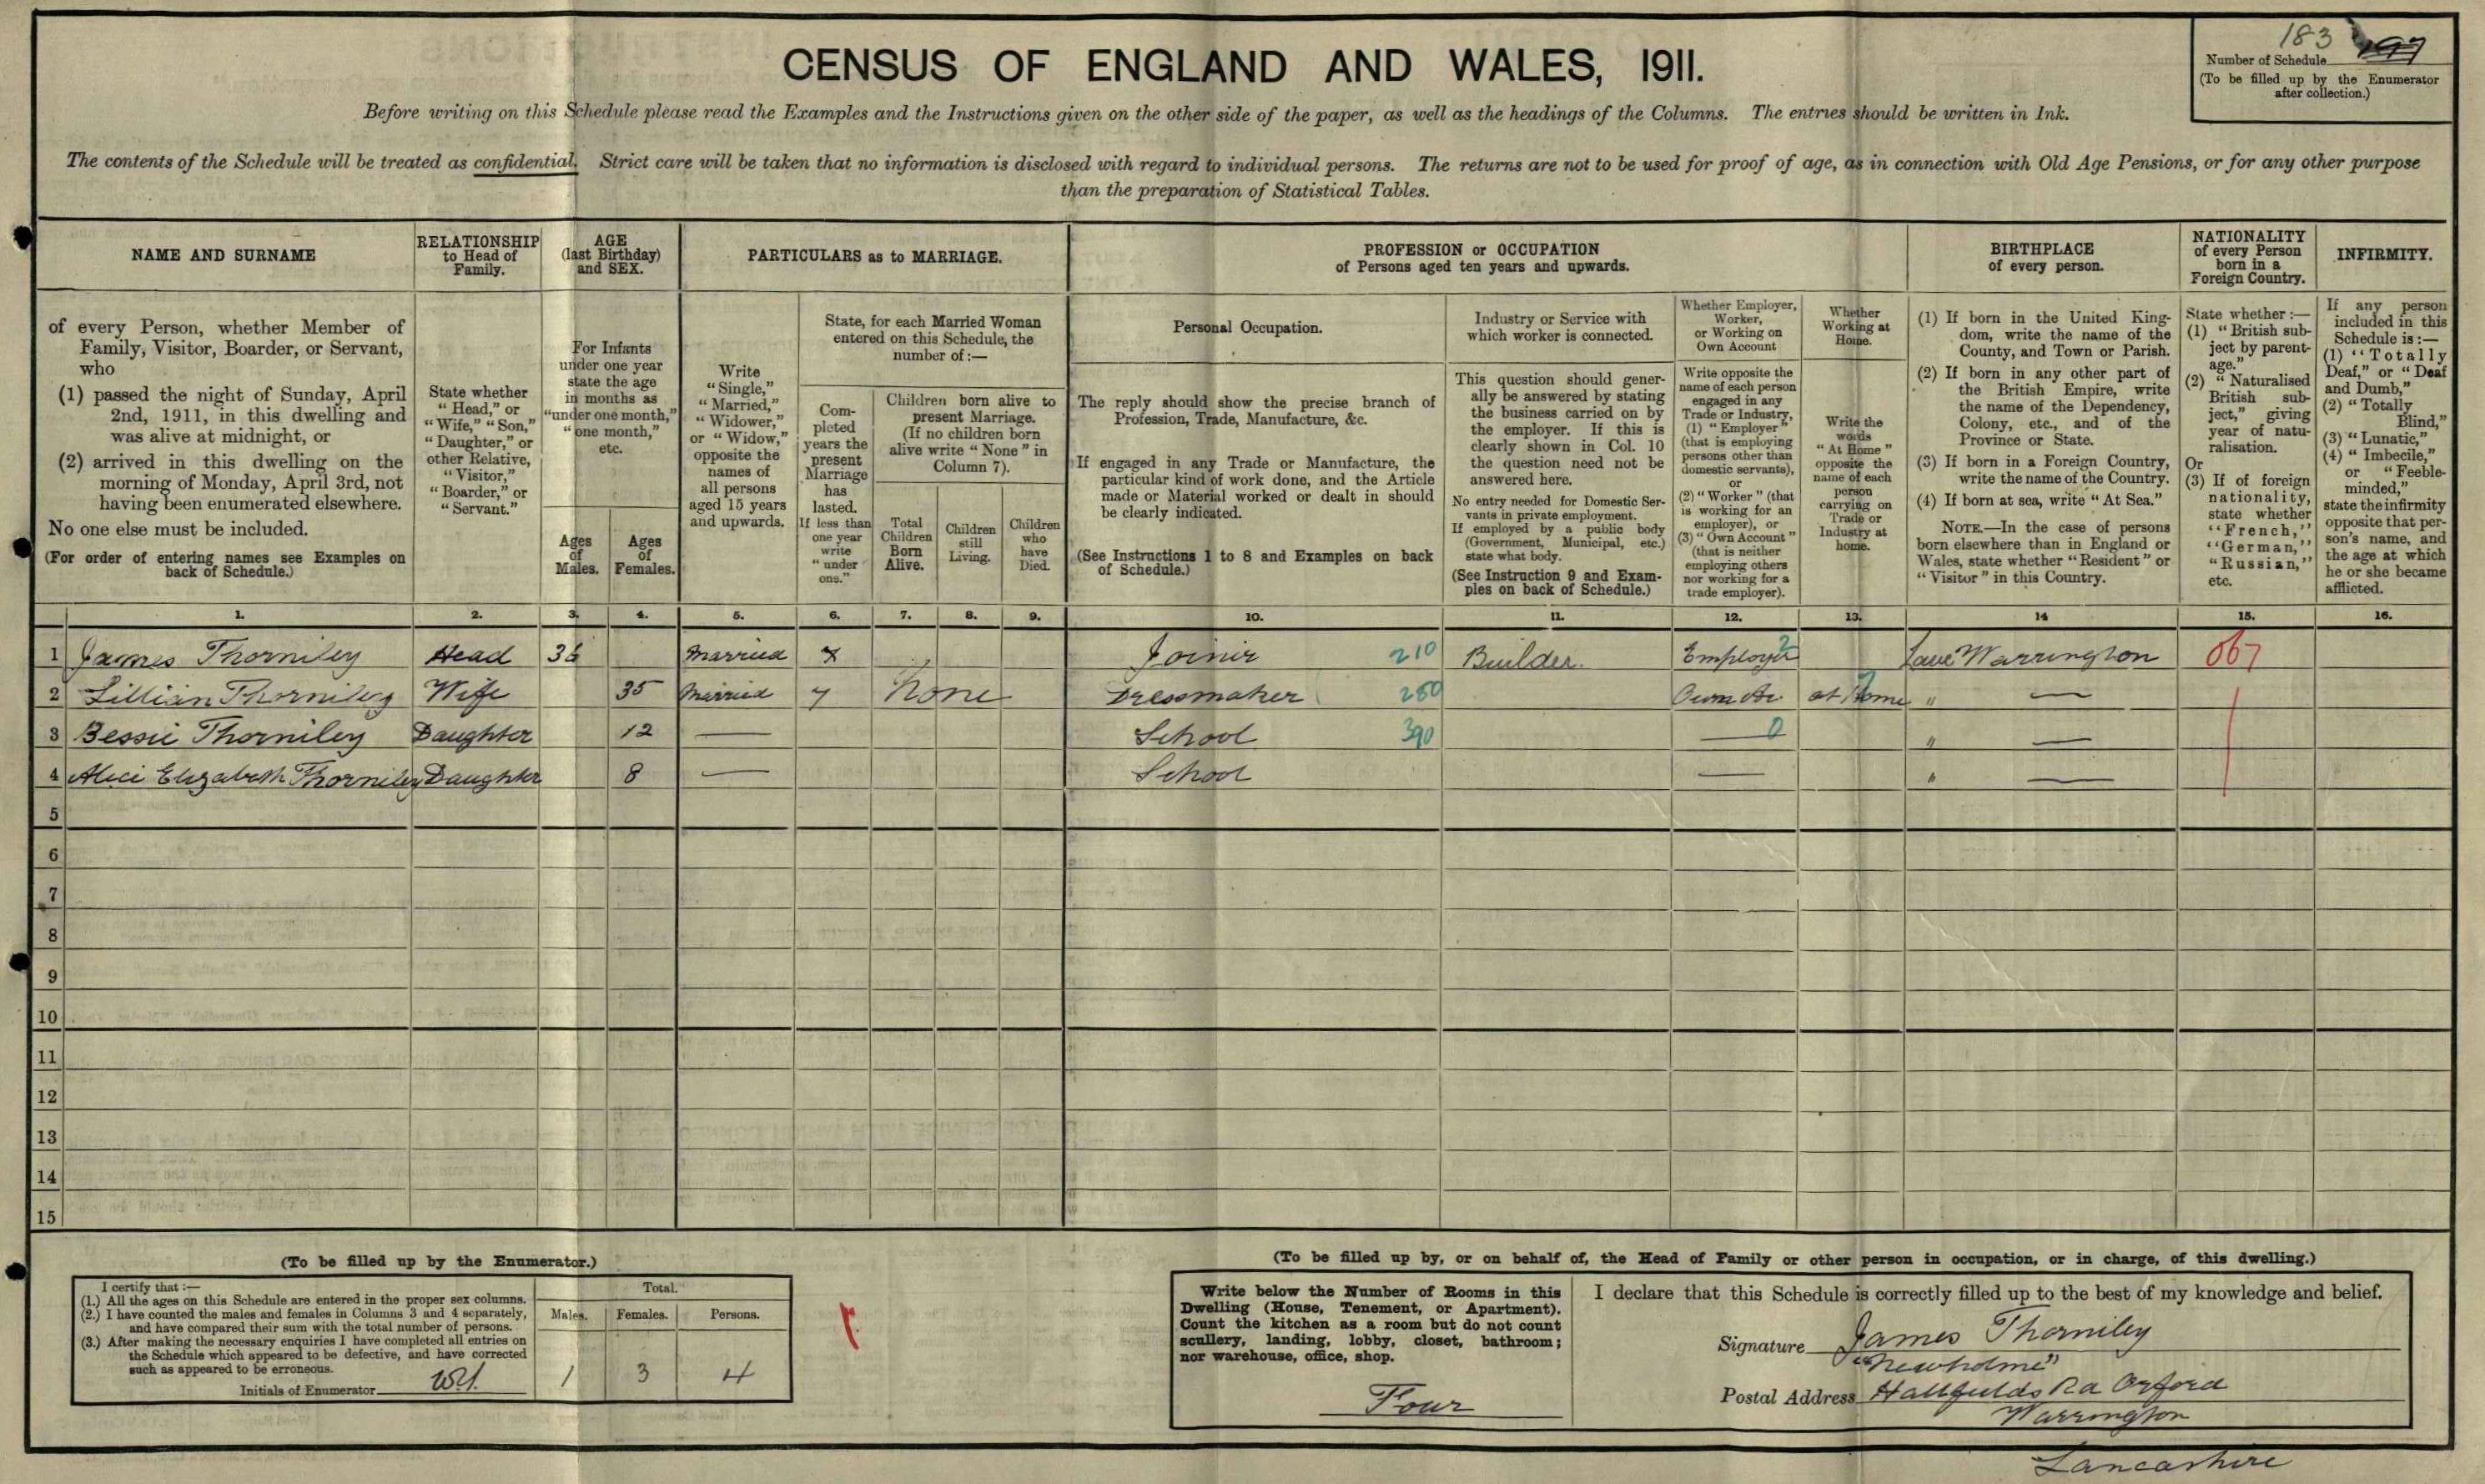 CENSUS OF ENGLAND AND WALES, 1911.
183
Number of Schedule 197
(To be filled up by the Enumerator
after collection.)
Before writing on this Schedule please read the Examples and the Instructions given on the other side of the paper, as well as the headings of the Columns. The entries should be written in Ink.
The contents of the Schedule will be treated as confidential. Strict care will be taken that no information is disclosed with regard to individual persons. The returns are not to be used for proof of age, as in connection with Old Age Pensions, or for any other purpose
than the preparation of Statistical Tables.
NAME AND SURNAME
of every Person, whether Member of
Family, Visitor, Boarder, or Servant,
who
(1) passed the night of Sunday, April
2nd, 1911, in this dwelling and
was alive at midnight, or
(2) arrived in this dwelling on the
morning of Monday, April 3rd, not
having been enumerated elsewhere.
No one else must be included.
(For order of entering names see Examples on
back of Schedule.)
RELATIONSHIP
to Head of
Family.
State whether
"Head," or
"Wife," "Son,"
"Daughter," or
other Relative,
"Visitor,"
"Boarder," or
"Servant."
AGE
(last Birthday)
and SEX.
For Infants
under one year
state the age
in months as
"under one month,"
"one month,"
etc.
Ages
of
Males.
Ages
of
Females.
PARTICULARS as to MARRIAGE.
Write
"Single,"
"Married,"
"Widower,"
or "Widow,"
opposite the
names of
all persons
aged 15 years
and upwards.
State, for each Married Woman
entered on this Schedule, the
number of:—
Com-
pleted
years the
present
Marriage
has
lasted.
If less than
one year
write
"under
one."
Children born alive to
present Marriage.
(If no children born
alive write "None" in
Column 7).
Total
Children
Born
Alive.
Children
still
Living.
Children
who
have
Died.
PROFESSION or OCCUPATION
of Persons aged ten years and upwards.
Personal Occupation.
The reply should show the precise branch of
Profession, Trade, Manufacture, &c.
If engaged in any Trade or Manufacture, the
particular kind of work done, and the Article
made or Material worked or dealt in should
be clearly indicated.
(See Instructions 1 to 8 and Examples on back
of Schedule.)
Industry or Service with
which worker is connected.
This question should gener-
ally be answered by stating
the business carried on by
the employer. If this is
clearly shown in Col. 10
the question need not be
answered here.
No entry needed for Domestic Ser-
vants in private employment.
If employed by a public body
(Government, Municipal, etc.)
state what body.
(See Instruction 9 and Exam-
ples on back of Schedule.)
Whether Employer,
Worker,
or Working on
Own Account
Write opposite the
name of each person
engaged in any
Trade or Industry,
(1) "Employer"
(that is employing
persons other than
domestic servants),
or
(2) "Worker" (that
is working for an
employer), or
(3) "Own Account"
(that is neither
employing others
nor working for a
trade employer).
Whether
Working at
Home.
Write the
words
"At Home"
opposite the
name of each
person
carrying on
Trade or
Industry at
home.
BIRTHPLACE
of every person.
(1) If born in the United King-
dom, write the name of the
County, and Town or Parish.
(2) If born in any other part of
the British Empire, write
the name of the Dependency,
Colony, etc., and of the
Province or State.
(3) If born in a Foreign Country,
write the name of the Country.
(4) If born at sea, write "At Sea."
NOTE.—In the case of persons
born elsewhere than in England or
Wales, state whether "Resident" or
"Visitor" in this Country.
NATIONALITY
of every Person
born in a
Foreign Country.
State whether:—
(1) "British sub-
ject by parent-
age."
(2) "Naturalised
British sub-
ject," giving
year of natu-
ralisation.
Or
(3) If of foreign
nationality,
state whether
"French,"
"German,"
"Russian,"
etc.
INFIRMITY.
If any person
included in this
Schedule is:—
(1) "Totally
Deaf," or "Deaf
and Dumb,"
(2) "Totally
Blind,"
(3) "Lunatic,"
(4) "Imbecile,"
or "Feeble-
minded,"
state the infirmity
opposite that per-
son's name, and
the age at which
he or she became
afflicted.
1. 2. 3. 4. 5. 6. 7. 8. 9. 10. 11. 12. 13. 14 15. 16.
1 James Thorniley Head 36 Married Joiner 210 Builder. Employer 2 Lanc Warrington 067
2 Lillian Thorniley Wife 35 Married 7 None Dressmaker 280 Own Ac. at Home " —
3 Bessie Thorniley Daughter 12 — School 390 — 0 " —
4 Alice Elizabeth Thorniley Daughter 8 — School — " —
5
6
7
8
9
10
11
12
13
14
15
(To be filled up by the Enumerator.)
I certify that:—
(1.) All the ages on this Schedule are entered in the proper sex columns.
(2.) I have counted the males and females in Columns 3 and 4 separately,
and have compared their sum with the total number of persons.
(3.) After making the necessary enquiries I have completed all entries on
the Schedule which appeared to be defective, and have corrected
such as appeared to be erroneous.
Initials of Enumerator
Total.
Males. Females. Persons.
1 3 4
(To be filled up by, or on behalf of, the Head of Family or other person in occupation, or in charge, of this dwelling.)
Write below the Number of Rooms in this
Dwelling (House, Tenement, or Apartment).
Count the kitchen as a room but do not count
scullery, landing, lobby, closet, bathroom;
nor warehouse, office, shop.
Four
I declare that this Schedule is correctly filled up to the best of my knowledge and belief.
Signature James Thorniley
"Newholme"
Postal Address Hallfields Rd Orford
Warrington
Lancashire